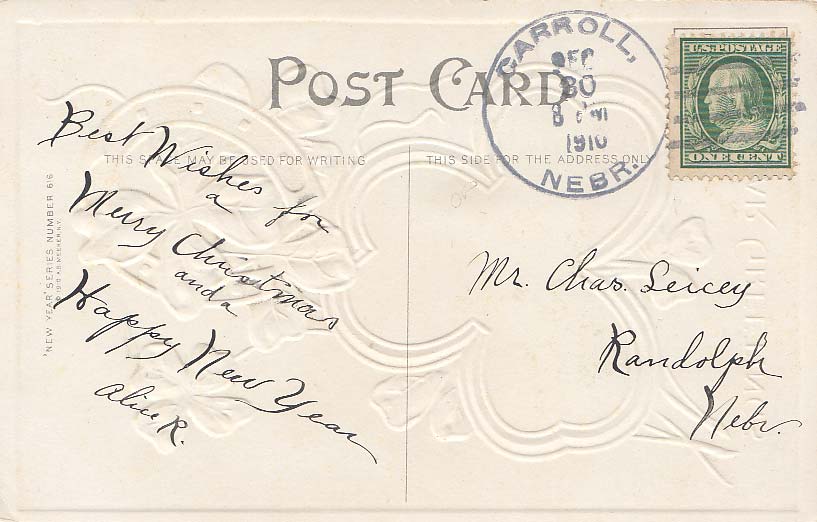 POST CARD
CARROLL,
DEC
30
8 PM
1910
NEBR.
U.S. POSTAGE
ONE CENT
THIS SPACE MAY BE USED FOR WRITING
THIS SIDE FOR THE ADDRESS ONLY
Best Wishes for
a
Merry Christmas
and a
Happy New Year
Alice R.
Mr. Chas. Leicey
Randolph
Nebr.
"NEW YEAR" SERIES NUMBER 616